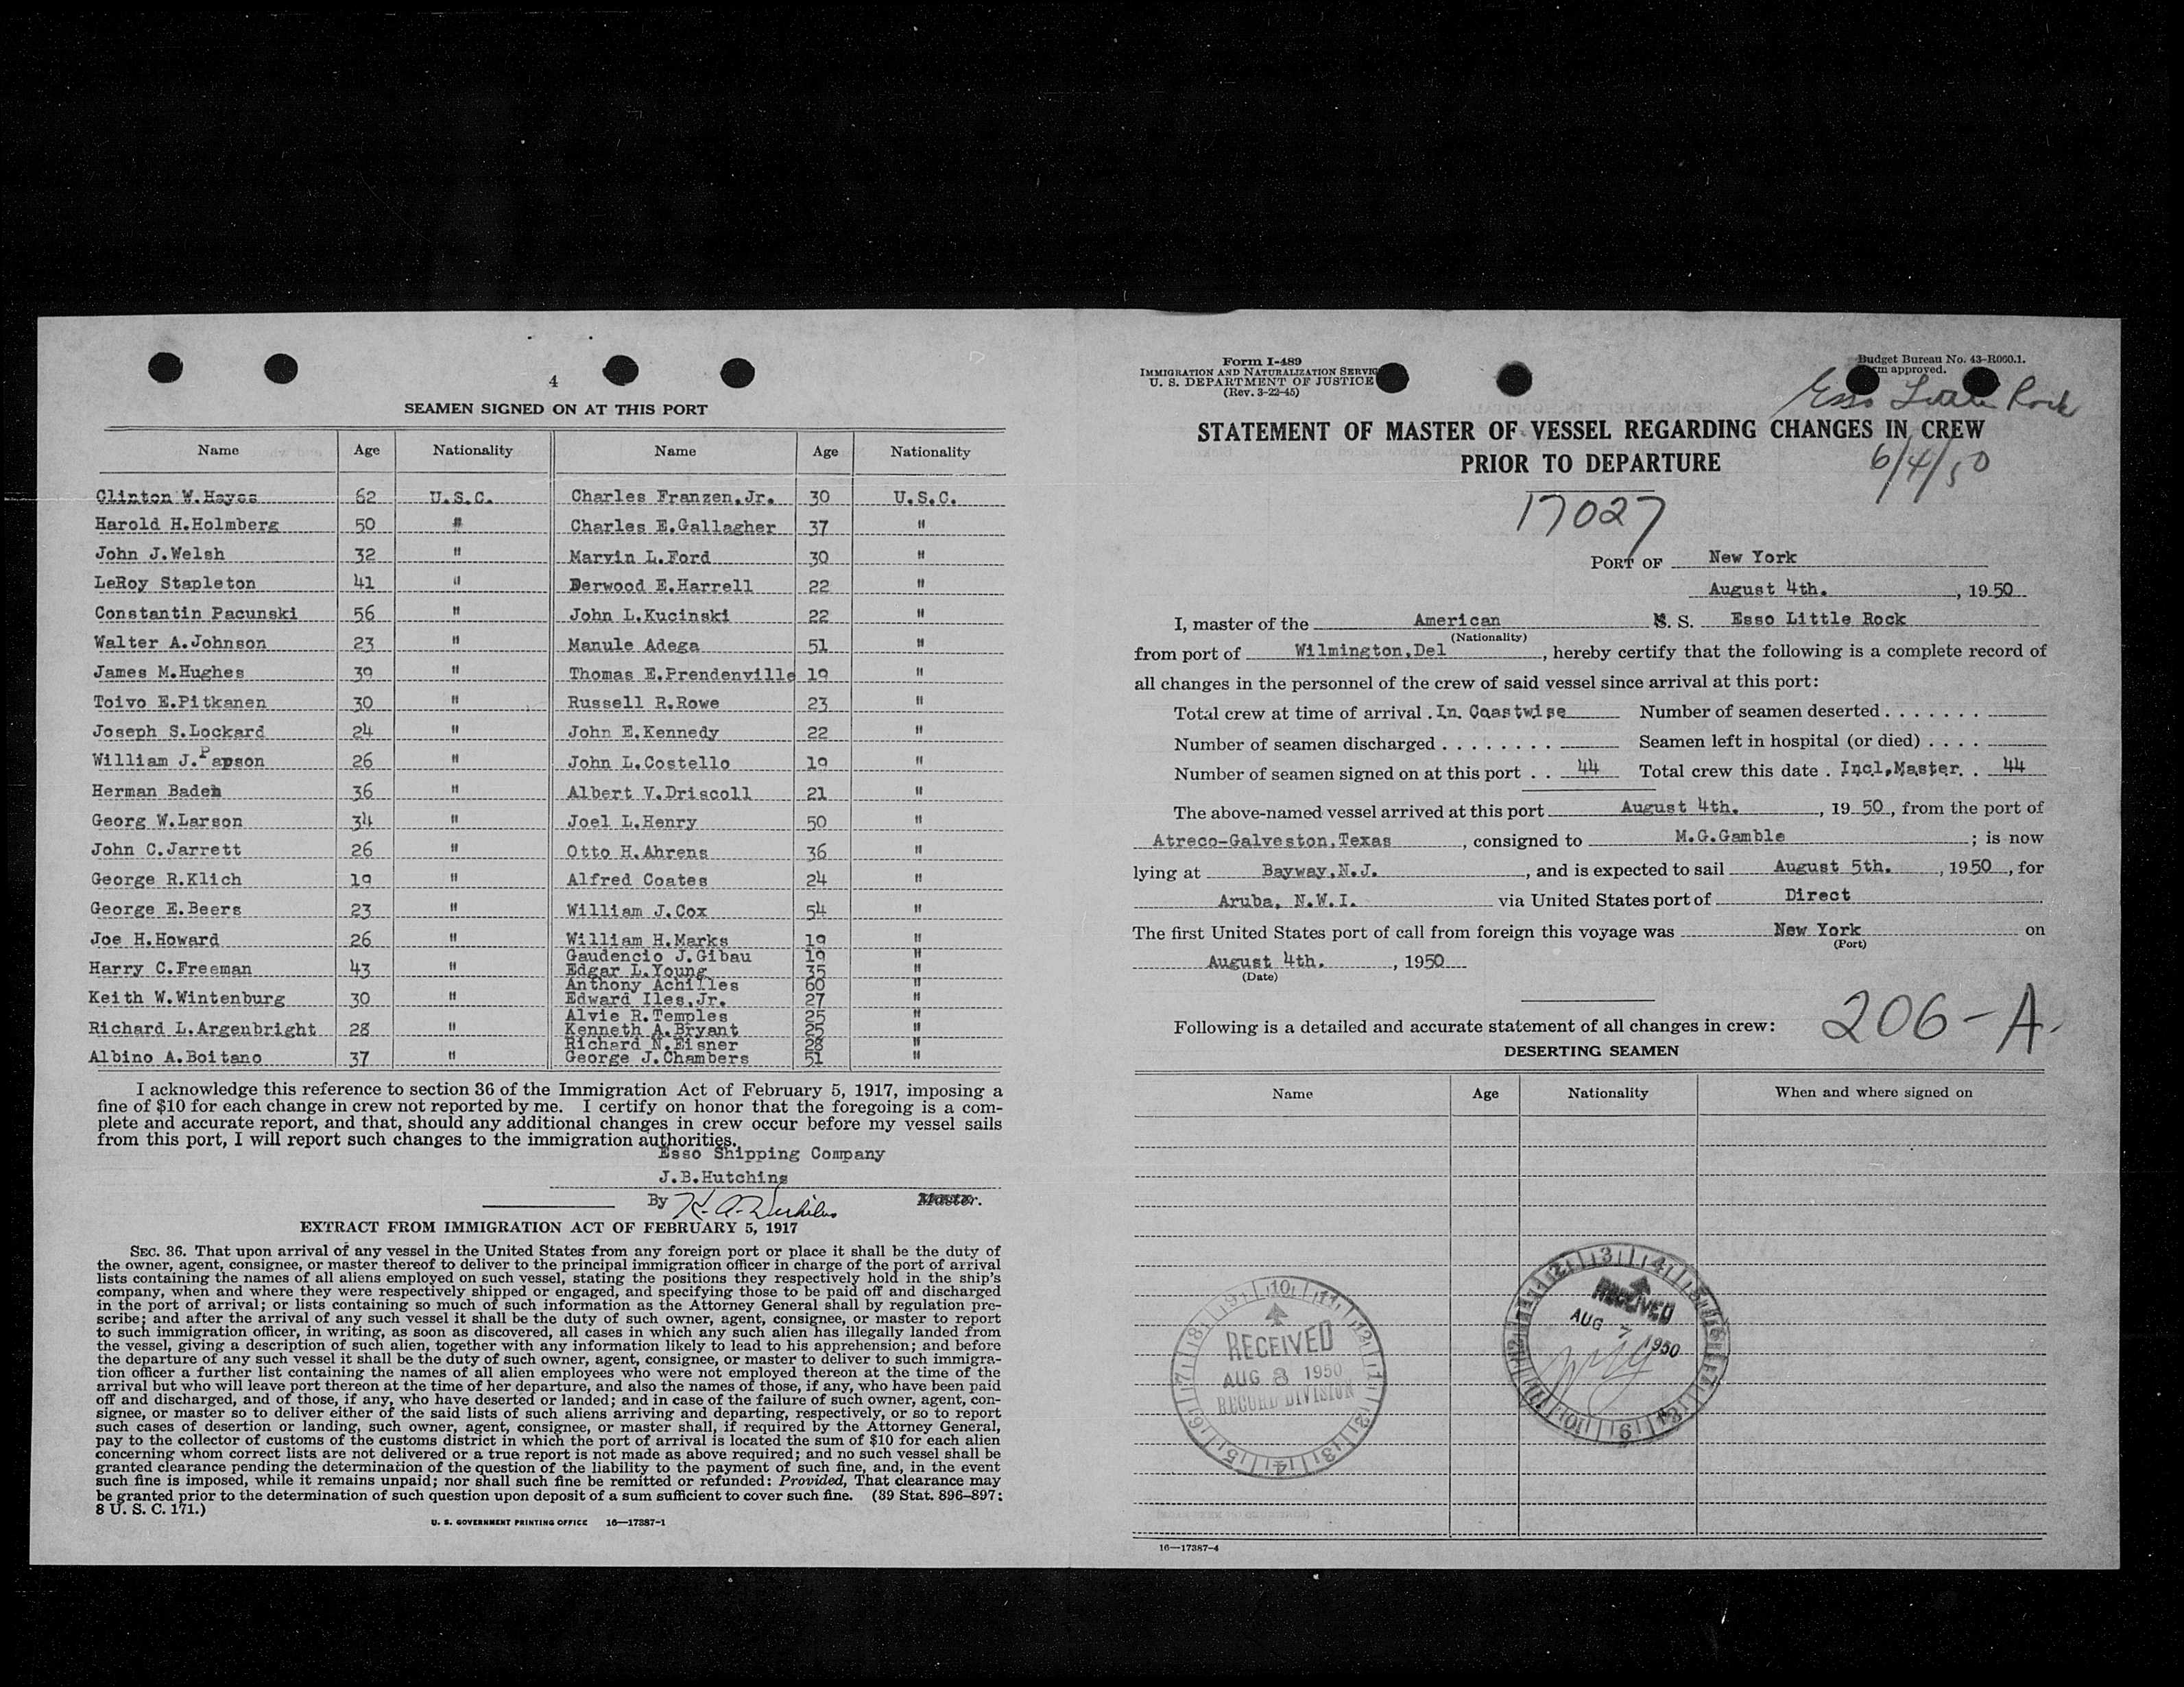 4
SEAMEN SIGNED ON AT THIS PORT
Name Age Nationality Name Age Nationality
Clinton W.Hayes 62 U.S.C. Charles Franzen,Jr. 30 U.S.C.
Harold H.Holmberg 50 " Charles E.Gallagher 37 "
John J.Welsh 32 " Marvin L.Ford 30 "
LeRoy Stapleton 41 " Derwood E.Harrell 22 "
Constantin Pacunski 56 " John L.Kucinski 22 "
Walter A.Johnson 23 " Manule Adega 51 "
James M.Hughes 39 " Thomas E.Prendenville 19 "
Toivo E.Pitkanen 30 " Russell R.Rowe 23 "
Joseph S.Lockard 24 " John E.Kennedy 22 "
William J.Papson 26 " John L.Costello 19 "
Herman Baden 36 " Albert V.Driscoll 21 "
Georg W.Larson 34 " Joel L.Henry 50 "
John C.Jarrett 26 " Otto H.Ahrens 36 "
George R.Klich 19 " Alfred Coates 24 "
George E.Beers 23 " William J.Cox 54 "
Joe H.Howard 26 " William H.Marks 19 "
Gaudencio J.Gibau 19 "
Harry C.Freeman 43 " Edgar L.Young 35 "
Anthony Achilles 60 "
Keith W.Wintenburg 30 " Edward Iles,Jr. 27 "
Alvie R.Temples 25 "
Richard L.Argenbright 28 " Kenneth A.Bryant 25 "
Richard N.Eisner 28 "
Albino A.Boitano 37 " George J.Chambers 51 "
I acknowledge this reference to section 36 of the Immigration Act of February 5, 1917, imposing a
fine of $10 for each change in crew not reported by me. I certify on honor that the foregoing is a com-
plete and accurate report, and that, should any additional changes in crew occur before my vessel sails
from this port, I will report such changes to the immigration authorities.
Esso Shipping Company
J.B.Hutchins
By Master.
EXTRACT FROM IMMIGRATION ACT OF FEBRUARY 5, 1917
SEC. 36. That upon arrival of any vessel in the United States from any foreign port or place it shall be the duty of
the owner, agent, consignee, or master thereof to deliver to the principal immigration officer in charge of the port of arrival
lists containing the names of all aliens employed on such vessel, stating the positions they respectively hold in the ship's
company, when and where they were respectively shipped or engaged, and specifying those to be paid off and discharged
in the port of arrival; or lists containing so much of such information as the Attorney General shall by regulation pre-
scribe; and after the arrival of any such vessel it shall be the duty of such owner, agent, consignee, or master to report
to such immigration officer, in writing, as soon as discovered, all cases in which any such alien has illegally landed from
the vessel, giving a description of such alien, together with any information likely to lead to his apprehension; and before
the departure of any such vessel it shall be the duty of such owner, agent, consignee, or master to deliver to such immigra-
tion officer a further list containing the names of all alien employees who were not employed thereon at the time of the
arrival but who will leave port thereon at the time of her departure, and also the names of those, if any, who have been paid
off and discharged, and of those, if any, who have deserted or landed; and in case of the failure of such owner, agent, con-
signee, or master so to deliver either of the said lists of such aliens arriving and departing, respectively, or so to report
such cases of desertion or landing, such owner, agent, consignee, or master shall, if required by the Attorney General,
pay to the collector of customs of the customs district in which the port of arrival is located the sum of $10 for each alien
concerning whom correct lists are not delivered or a true report is not made as above required; and no such vessel shall be
granted clearance pending the determination of the question of the liability to the payment of such fine, and, in the event
such fine is imposed, while it remains unpaid; nor shall such fine be remitted or refunded: Provided, That clearance may
be granted prior to the determination of such question upon deposit of a sum sufficient to cover such fine. (39 Stat. 896-897;
8 U. S. C. 171.)
U. S. GOVERNMENT PRINTING OFFICE 16—17387-1
Form I-489
IMMIGRATION AND NATURALIZATION SERVICE
U. S. DEPARTMENT OF JUSTICE
(Rev. 3-22-45)
Budget Bureau No. 43-R060.1.
approved.
Esso Little Rock
STATEMENT OF MASTER OF VESSEL REGARDING CHANGES IN CREW
PRIOR TO DEPARTURE
6/4/50
17027
PORT OF New York
August 4th. , 19 50
I, master of the American M. S. Esso Little Rock
(Nationality)
from port of Wilmington,Del , hereby certify that the following is a complete record of
all changes in the personnel of the crew of said vessel since arrival at this port:
Total crew at time of arrival . In. Coastwise Number of seamen deserted . . . . . . .
Number of seamen discharged . . . . . . . . Seamen left in hospital (or died) . . . .
Number of seamen signed on at this port . . 44 Total crew this date . Incl,Master. . 44
The above-named vessel arrived at this port August 4th. , 19 50 , from the port of
Atreco-Galveston,Texas , consigned to M.G.Gamble ; is now
lying at Bayway,N.J. , and is expected to sail August 5th. , 1950 , for
Aruba, N.W.I. via United States port of Direct
The first United States port of call from foreign this voyage was New York on
(Port)
August 4th. , 1950
(Date)
206-A.
Following is a detailed and accurate statement of all changes in crew:
DESERTING SEAMEN
Name Age Nationality When and where signed on
RECEIVED
AUG 7 1950
RECEIVED
AUG 8 1950
RECORD DIVISION
16—17387-4